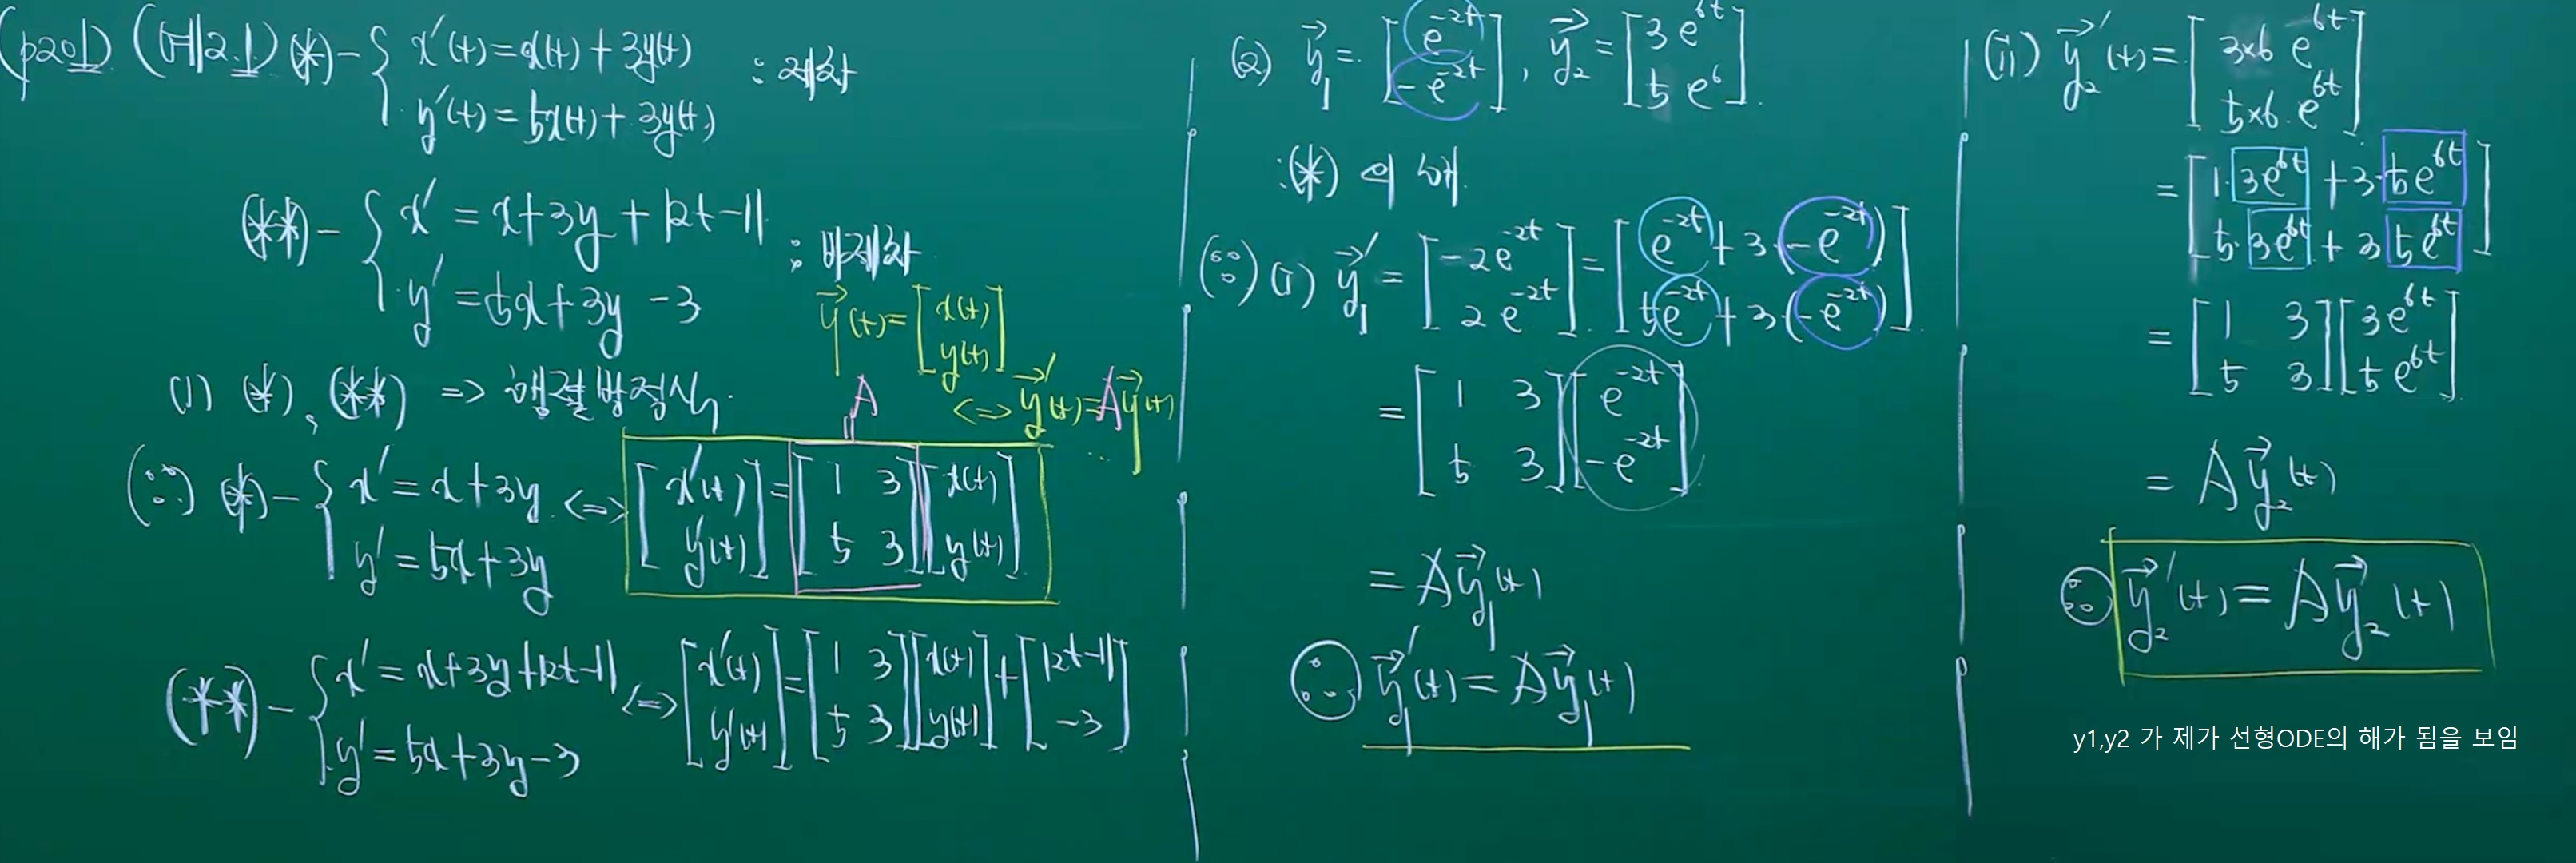 (p201) (예2.1) (*) - { x'(t) = x(t) + 3y(t)
y'(t) = 5x(t) + 3y(t)
: 제차
(**) - { x' = x + 3y + 12t - 11
y' = 5x + 3y - 3
: 비제차
(1) (*), (**) => 행렬방정식
y⃗(t) = [ x(t)
y(t) ]
<=> y⃗'(t) = Ay⃗(t)
A
(∵) (*) - { x' = x + 3y
y' = 5x + 3y
<=> [ x'(t) y'(t) ] = [ 1 3
5 3 ] [ x(t) y(t) ]
(**) - { x' = x + 3y + 12t - 11
y' = 5x + 3y - 3
<=> [ x'(t) y'(t) ] = [ 1 3
5 3 ] [ x(t) y(t) ] + [ 12t - 11
-3 ]
(2) y⃗₁ = [ e^{-2t}
-e^{-2t} ] , y⃗₂ = [ 3e^{6t}
5e^{6} ]
: (*) 의 해.
(∵) (i) y⃗₁' = [ -2e^{-2t}
2e^{-2t} ] = [ e^{-2t} + 3·(-e^{-2t})
5e^{-2t} + 3·(-e^{-2t}) ]
= [ 1 3
5 3 ] [ e^{-2t}
-e^{-2t} ]
= Ay⃗₁(t)
∴ y⃗₁'(t) = Ay⃗₁(t)
(ii) y⃗₂'(t) = [ 3×6 e^{6t}
5×6·e^{6t} ]
= [ 1·3e^{6t} + 3·5e^{6t}
5·3e^{6t} + 3·5e^{6t} ]
= [ 1 3
5 3 ] [ 3e^{6t}
5e^{6t} ]
= Ay⃗₂(t)
∴ y⃗₂'(t) = Ay⃗₂(t)
y1,y2 가 제가 선형ODE의 해가 됨을 보임